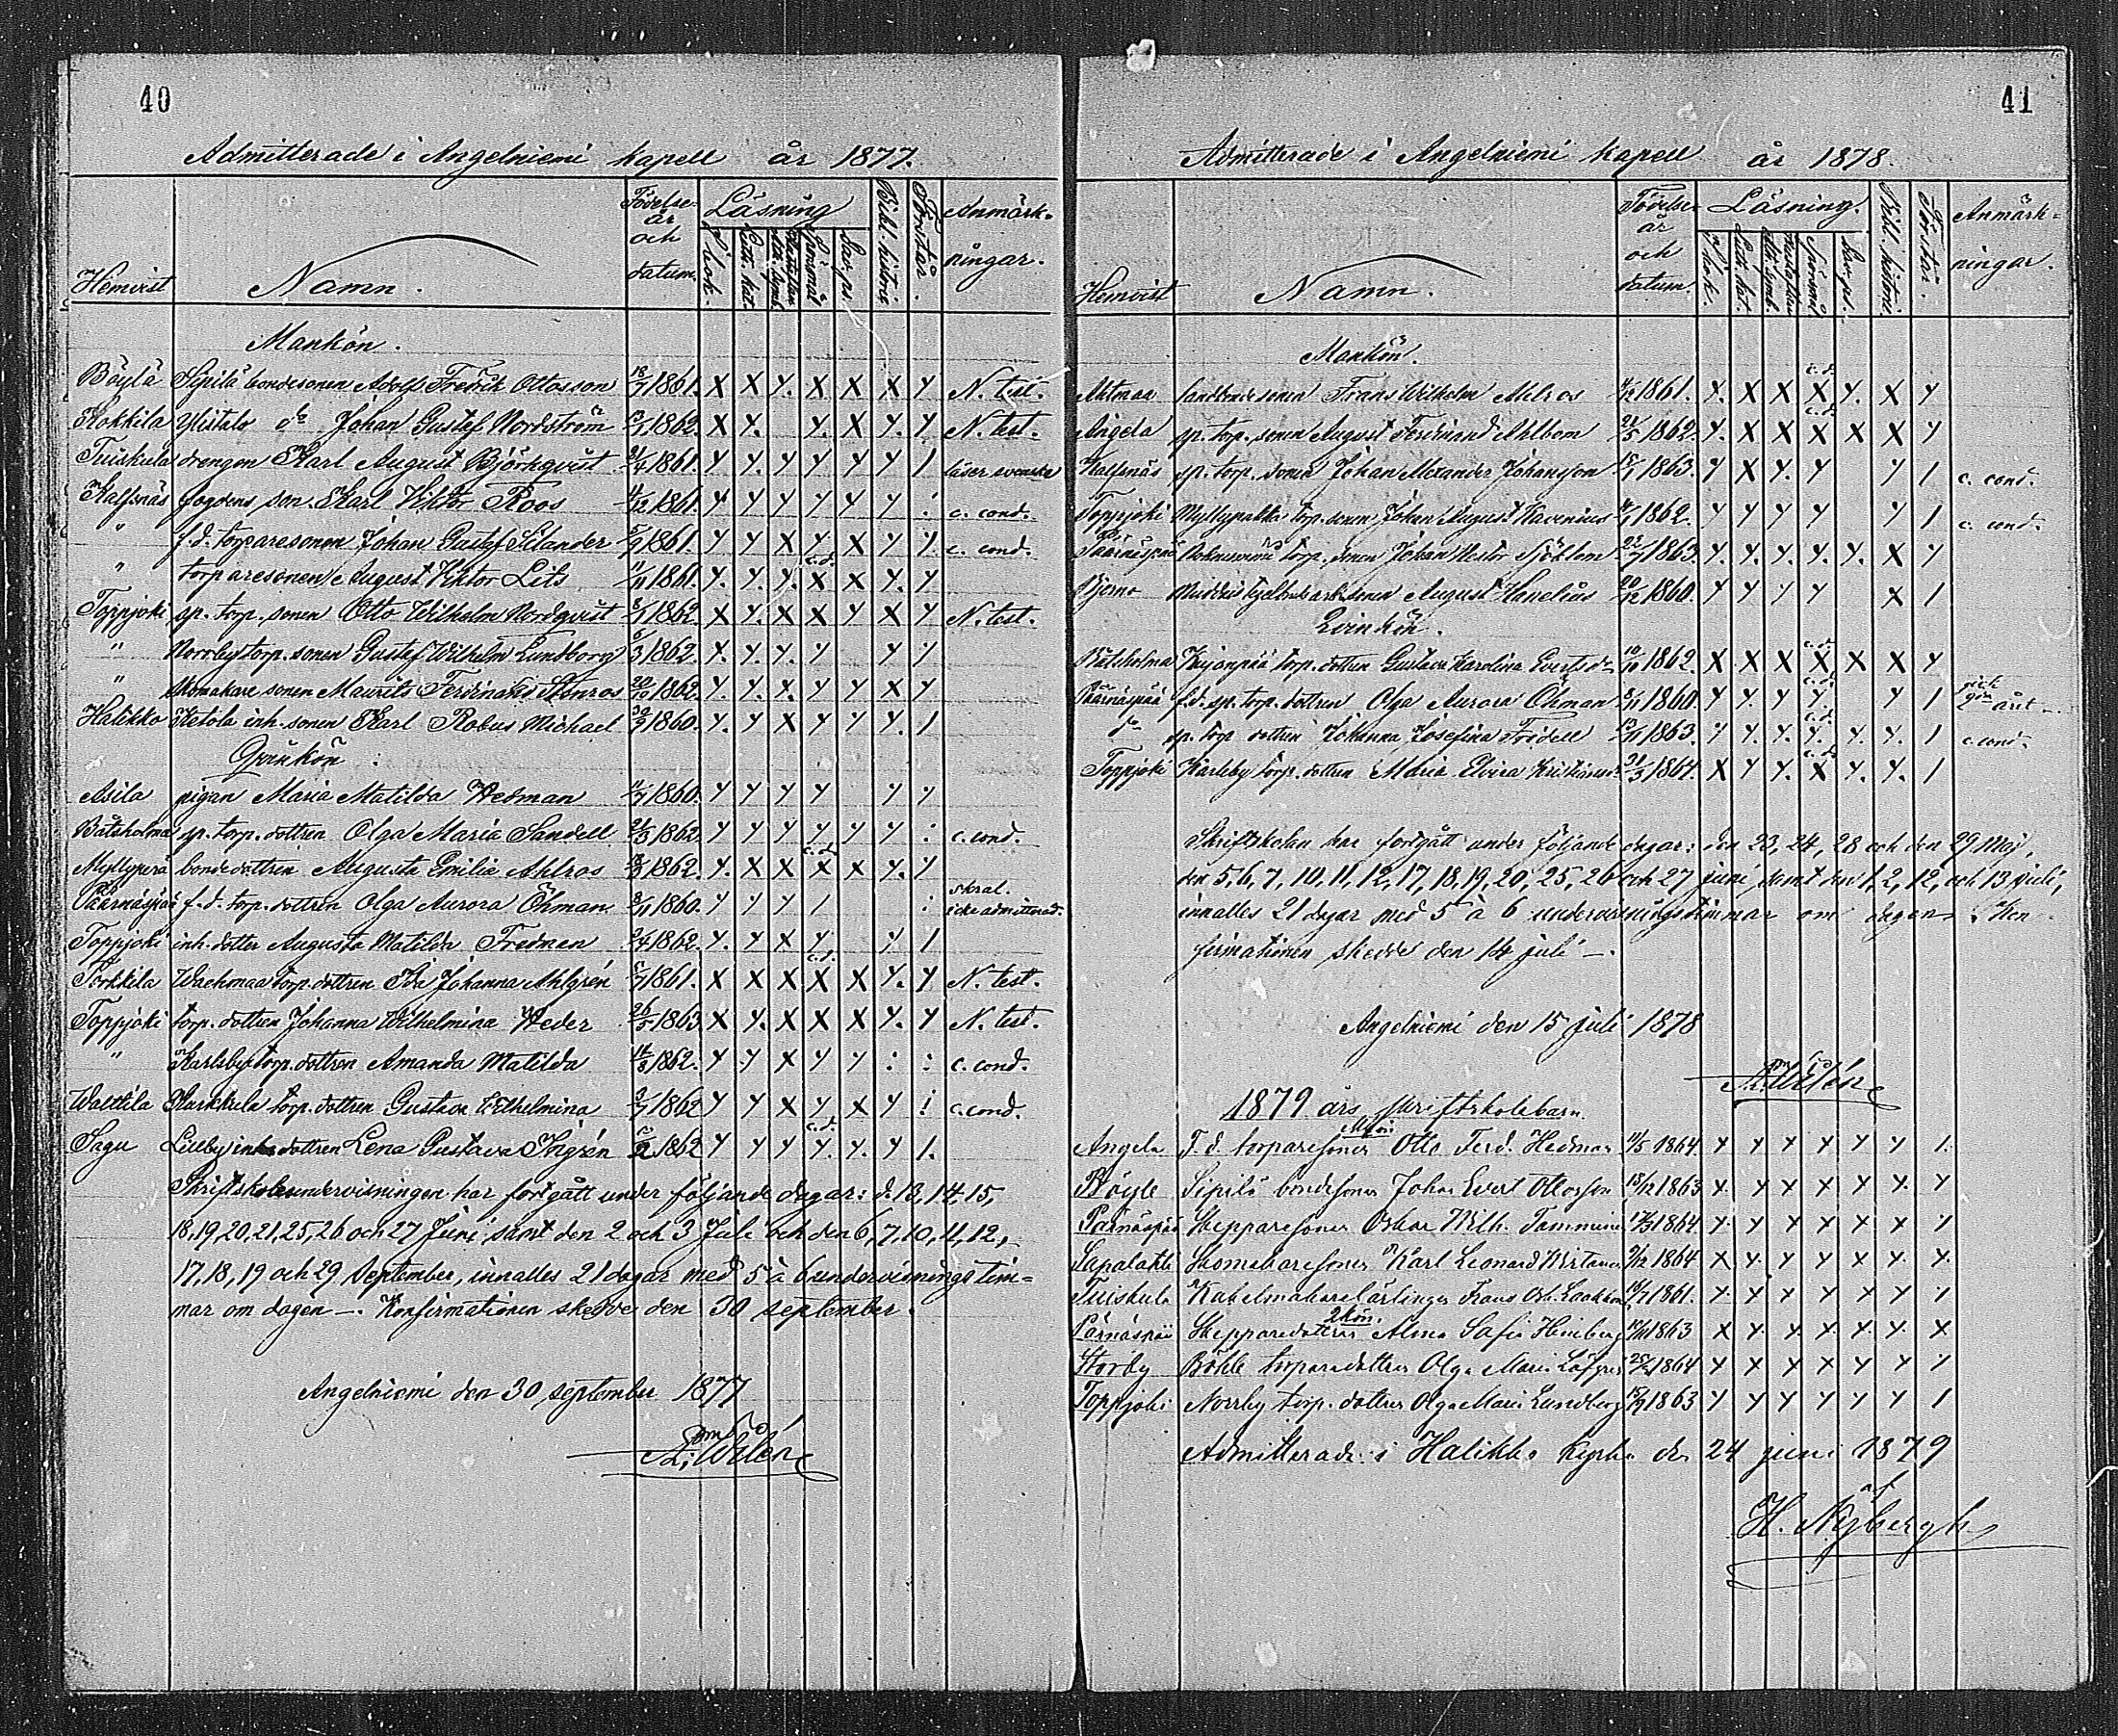 40
Admitterade i Angelniemi kapell år 1877.
Hemvist Namn. Födelse år och datum. Läsning Bibl. historie Förstår. Anmärkningar.
I bok. Luth. kat. Spörsmål Dav. ps.
Mankön.
Böylä Sipilä bondesonen Adolf Fredrik Ottosson 18/7 1861. X X Y. X X X Y N. test.
Kokkila Ylistalo do Johan Gustaf Nordström 1862. X Y. Y. X Y. Y N. test.
Tuiskula drengen Karl August Björkqvist 1861. Y Y Y Y Y Y 1 läser svenska
Kalfsnäs fogdens son Karl Viktor Roos 1861. Y Y Y Y Y Y : c. cond.
" f.d. torparesonen Johan Gustaf Silander 5/9 1861. Y Y X Y X Y Y. c. cond.
" torparesonen August Viktor Lits 11/11 1861. Y. Y. Y. c.d. X X Y. Y.
Toppjoki sp. torp. sonen Otto Wilhelm Nordqvist 1862. X Y. X X Y X Y N. test.
" Norrby torp. sonen Gustaf Wilhelm Lundborg 5/3 1862. Y. Y. Y. Y Y Y
" skomakare sonen Maurits Ferdinand Stenros 1862. Y. Y. X. Y Y X Y
Halikko Ketola inh. sonen Karl Robus Michael 1860. Y. Y X Y Y Y. 1
Qvinkön :
Asila pigan Maria Matilda Hedman 1860. Y Y Y Y Y Y
Båtsholma sp. torp. dottren Olga Maria Sandell 21/3 1862. Y Y Y Y Y Y : c. cond.
Myllyperä bondedottren Augusta Emilia Ahlros 1862. Y. X X c.d. X X Y. Y
Päärnäspää f.d. torp. dottren Olga Aurora Öhman 8/11 1860. Y Y Y 1 : skral. icke admitterad.
Toppjoki inh. dotter Augusta Matilda Fredman 1862. Y. Y X Y Y 1
Torkkila Wachmaa torp. dottren Ida Johanna Ahlgrén 1861. X X X c.d. X X Y. Y N. test.
Toppjoki torp. dottren Johanna Wilhelmina Heder 26/5 1863 X Y. X X X Y. Y N. test.
" Karlsby torp. dottren Amanda Matilda 1862. Y Y X Y Y : : c. cond.
Walttila Karkkula torp. dottren Gustava Wilhelmina 1862 Y Y X Y X Y : c. cond.
Sagu Lillby inh. dottren Lena Gustava Ingrén 1862 Y Y Y c.d. Y. Y. Y 1.
Skriftskoleundervisningen har fortgått under följande dagar: d. 13, 14, 15,
18, 19, 20, 21, 25, 26 och 27 Juni samt den 2 och 3 Juli och den 6, 7, 10, 11, 12,
17, 18, 19 och 29 September, innalles 21 dagar med 5 à 6 undervisnings tim-
mar om dagen —. Konfirmationen skedde den 30 september.
Angelniemi den 30 september 1877
A. Wilén
41
Admitterade i Angelniemi kapell år 1878.
Hemvist Namn. Födelse år och datum. Läsning. Bibl. historie. Förstår. Anmärkningar.
I bok. Luth. kat. Spörsmål Dav. ps.
Mankön.
Ahtmaa landbondesonen Frans Wilhelm Ahlros 1861. Y. X X c.d. X Y. X Y
Angela sp. torp. sonen August Ferdinand Ahlbom 21/5 1862. Y. X X c.d. X X X Y
Kalfsnäs sp. torp. sonen Johan Alexander Johansson 1863. Y X Y. Y Y 1 c. cond.
Toppjoki Myllypakka torp. sonen Johan August Kavenius 1862. Y Y Y Y Y 1 c. cond.
Päärnäspää torp. sonen Johan Nestor Sjöblom 1863. Y. Y. Y. Y. Y. X Y
Bjerno arb. sonen August Hanelius 20/12 1860. Y Y Y Y X 1
Qvinkön.
Båtsholma torp. dottren Gustava Karolina Evertsdr 10/10 1862. X X X c.d. X X X Y
Päärnäspää f.d. sp. torp. dottren Olga Aurora Öhman 8/11 1860. Y Y. Y c.d. Y. Y 1 gick 2dra året —
do sp. torp. dottren Johanna Josefina Fridell 1863. Y Y. Y. c.d. Y. Y Y. 1 c. cond.
Toppjoki Karleby torp. dottren Maria Elvira 21/3 1864. X Y Y. c.d. X Y. Y. 1
Skriftskolan har fortgått under följande dagar: den 23, 24, 28 och den 29 Maj,
den 5, 6, 7, 10, 11, 12, 17, 18, 19, 20, 25, 26 och 27 juni, samt den 1, 2, 12, och 13 juli,
innalles 21 dagar med 5 à 6 undervisningstimmar om dagen. Kon
firmationen skedde den 14 juli —.
Angelniemi den 15 juli 1878
A. Wilén
1879 års Skriftskolebarn.
M.kön.
Angela F.d. torparesonen Otto Ferd. Hedman 11/5 1864. Y Y Y Y Y Y 1.
Böyle Sipilä bondesonen Johan Evert Ottosson 15/12 1863 Y. Y Y Y Y Y. Y
Pärnäspää Skepparesonen Oskar Wilh. Tamminen 1864. Y. Y Y Y Y Y Y
Sapalahti Skomakaresonen Karl Leonard Wirtanen 9/12 1864 X Y. Y Y Y Y. Y.
Tuiskula Kakelmakarelärlingen Frans Osk. 1861. Y. Y Y Y Y Y. Y
Qkön.
Pärnäspää Skepparedottren Alma Sofia Heinberg 1863 X Y. Y. Y. Y. Y. X
Storby Böhle torparedottren Olga Maria Löfgren 1864 Y Y Y Y Y Y Y
Toppjoki Norrby torp. dottren Olga Maria Lundberg 1863 Y Y Y Y Y Y 1
Admitterade i Halikko kyrka den 24 juni 1879
af
H. Nybergh